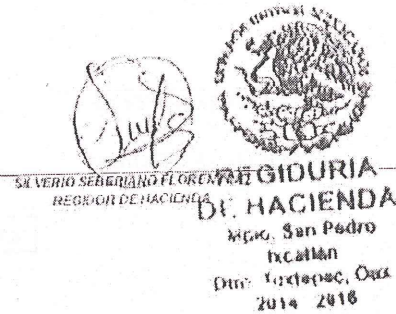 ESTADOS UNIDOS MEXICANOS
SILVERIO SEBERIANO FLORENTINO
REGIDOR DE HACIENDA
REGIDURIA
DE HACIENDA
Mpio. San Pedro
Ixcatlán
Dtto. Tuxtepec, Oax.
2014 2016